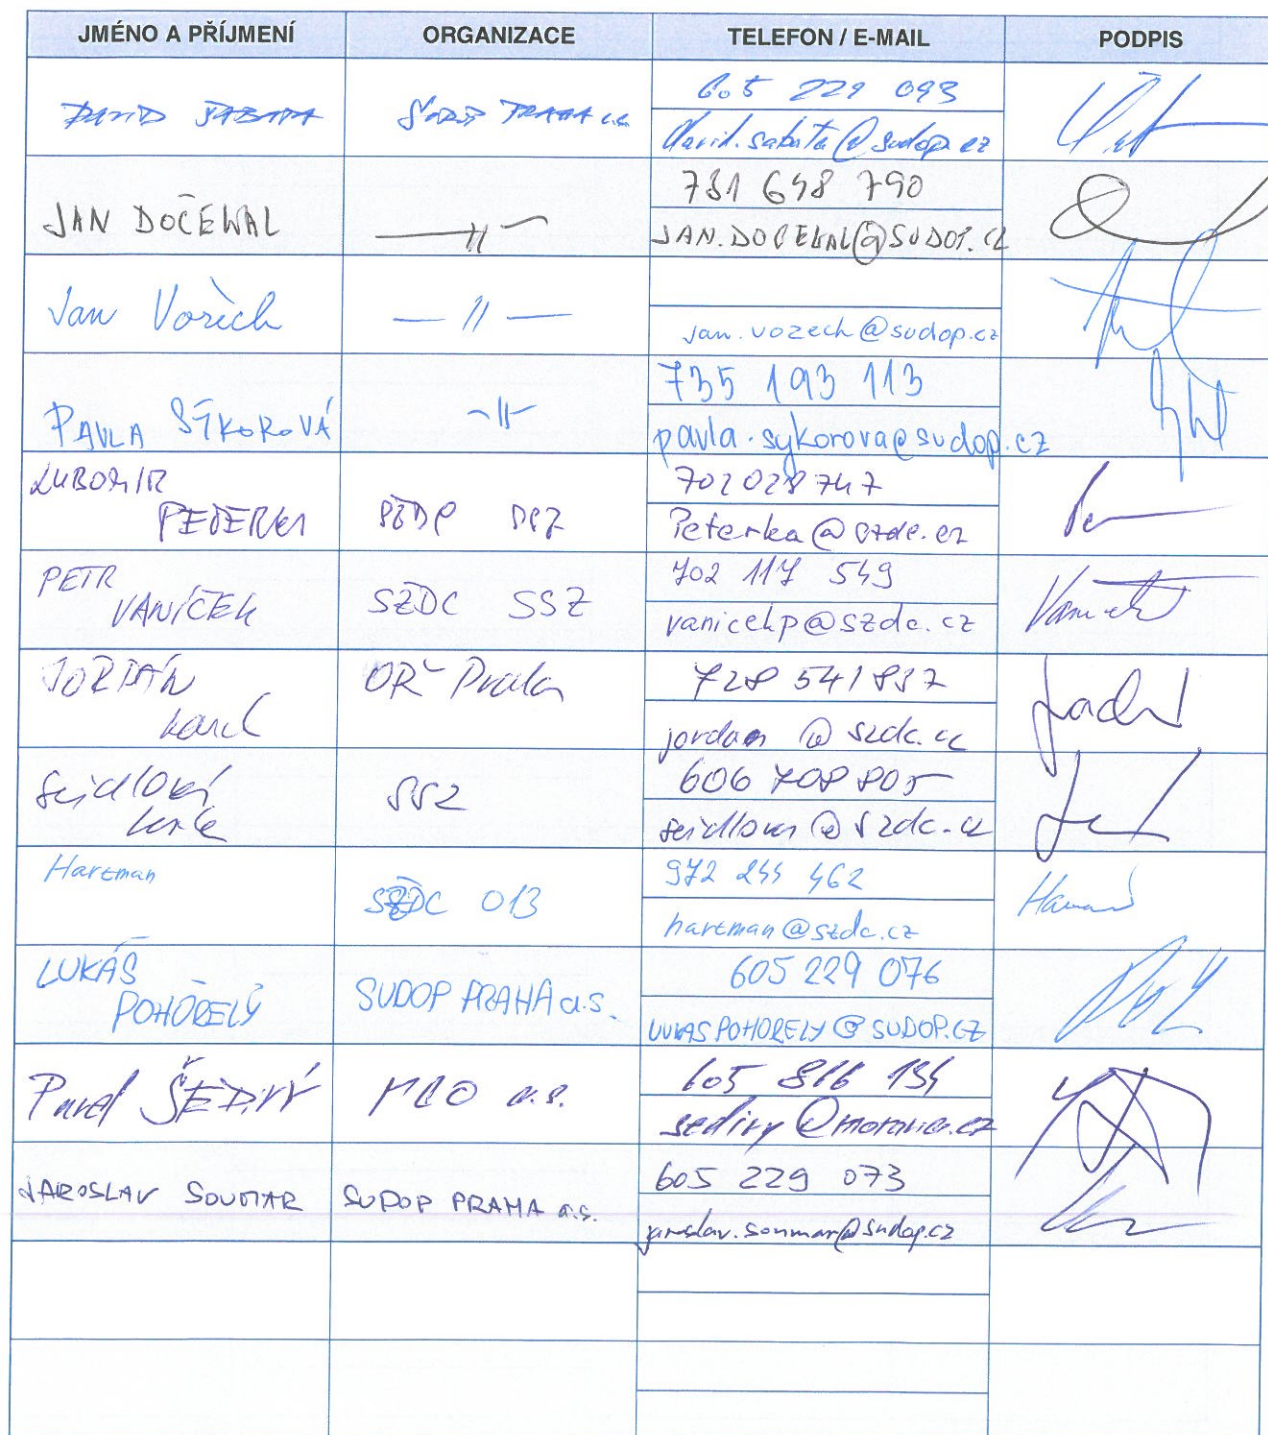 JMÉNO A PŘÍJMENÍ ORGANIZACE TELEFON / E-MAIL PODPIS
DAVID SABATA SUDOP PRAHA a.s. 605 229 093
david.sabata@sudop.cz
JAN DOČEKAL —〃— 731 648 790
JAN.DOCEKAL@SUDOP.CZ
Jan Vožech —〃—
jan.vozech@sudop.cz
PAVLA SÝKOROVÁ —〃— 735 193 113
pavla.sykorova@sudop.cz
LUBOMÍR
PETERKA SŽDC SSZ 702 028 747
Peterka@szdc.cz
PETR
VANÍČEK SŽDC SSZ 702 117 549
vanicekp@szdc.cz
JORDÁN
Karel OŘ Praha 728 541 837
jordan@szdc.cz
Seidlová
SSZ 606 708 805
seidlova@szdc.cz
Hartman
SŽDC 013 972 244 462
hartman@szdc.cz
LUKÁŠ
POHOŘELÝ SUDOP PRAHA a.s. 605 229 076
LUKAS.POHORELY@SUDOP.CZ
Pavel ŠEDIVÝ MCO a.s. 605 816 134
sedivy@moravia.cz
JAROSLAV SOUMAR SUDOP PRAHA a.s. 605 229 073
jaroslav.soumar@sudop.cz